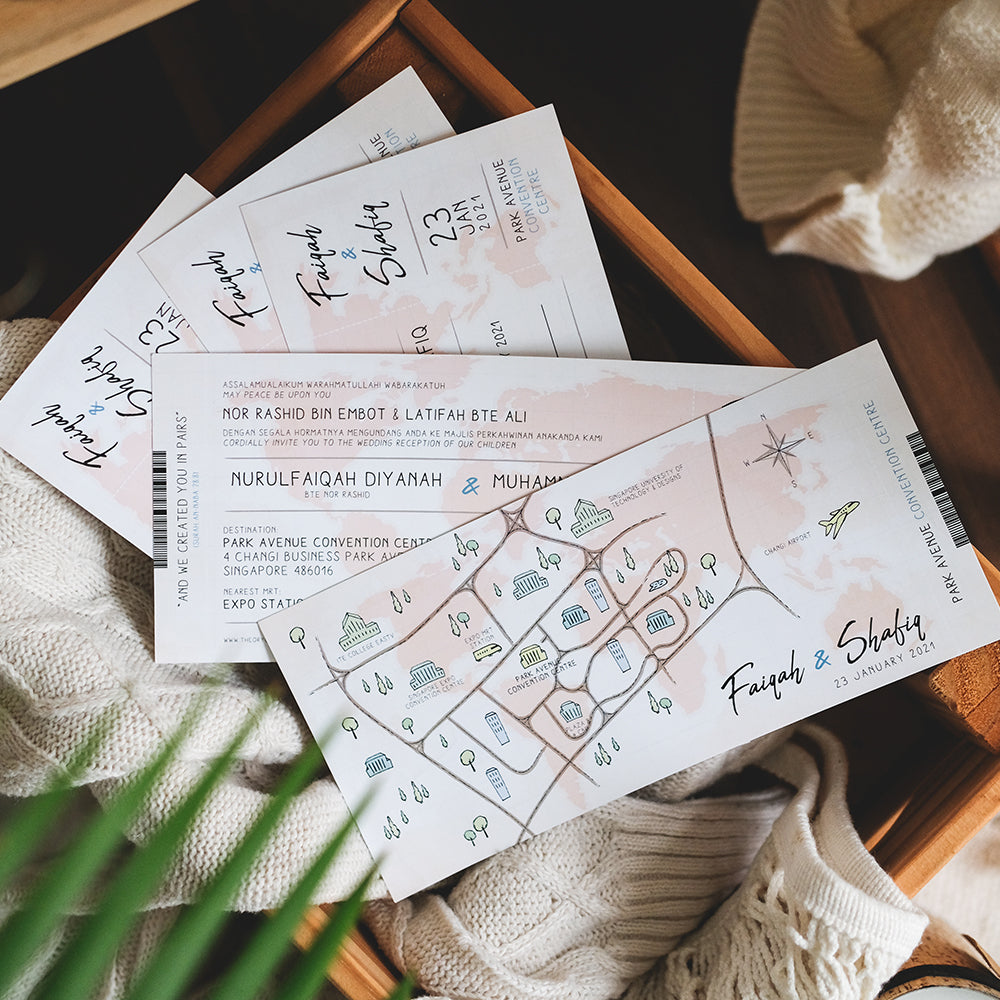 NUE
CONVENTION
CENTRE
Faiqah
&
Faiqah
&
Shafiq
23
JAN
2021
PARK AVENUE
CONVENTION
CENTRE
FIQ
2021
Faiqah
&
Shafiq
23
JAN
"AND WE CREATED YOU IN PAIRS"
ASSALAMUALAIKUM WARAHMATULLAHI WABARAKATUH
MAY PEACE BE UPON YOU
NOR RASHID BIN EMBOT & LATIFAH BTE ALI
DENGAN SEGALA HORMATNYA MENGUNDANG ANDA KE MAJLIS PERKAHWINAN ANAKANDA KAMI
CORDIALLY INVITE YOU TO THE WEDDING RECEPTION OF OUR CHILDREN
NURULFAIQAH DIYANAH & MUHAMM
BTE NOR RASHID
DESTINATION:
PARK AVENUE CONVENTION CENTR
4 CHANGI BUSINESS PARK AVE
SINGAPORE 486016
NEAREST MRT:
EXPO STATIO
WWW.THEORY
N
E
S
W
SINGAPORE UNIVERSITY OF
TECHNOLOGY & DESIGNS
CHANGI AIRPORT
ITE COLLEGE EAST
EXPO MRT
STATION
SINGAPORE EXPO
CONVENTION CENTRE
PARK AVENUE
CONVENTION CENTRE
PLAZA
Faiqah & Shafiq
23 JANUARY 2021
PARK AVENUE CONVENTION CENTRE